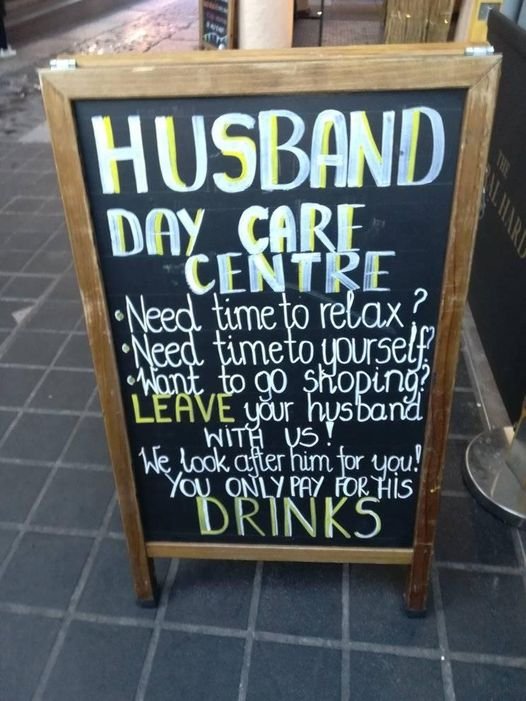 HUSBAND
DAY CARE
CENTRE
• Need time to relax?
• Need time to yourself?
• Want to go shoping?
LEAVE your husband
WITH US!
We look after him for you!
YOU ONLY PAY FOR HIS
DRINKS